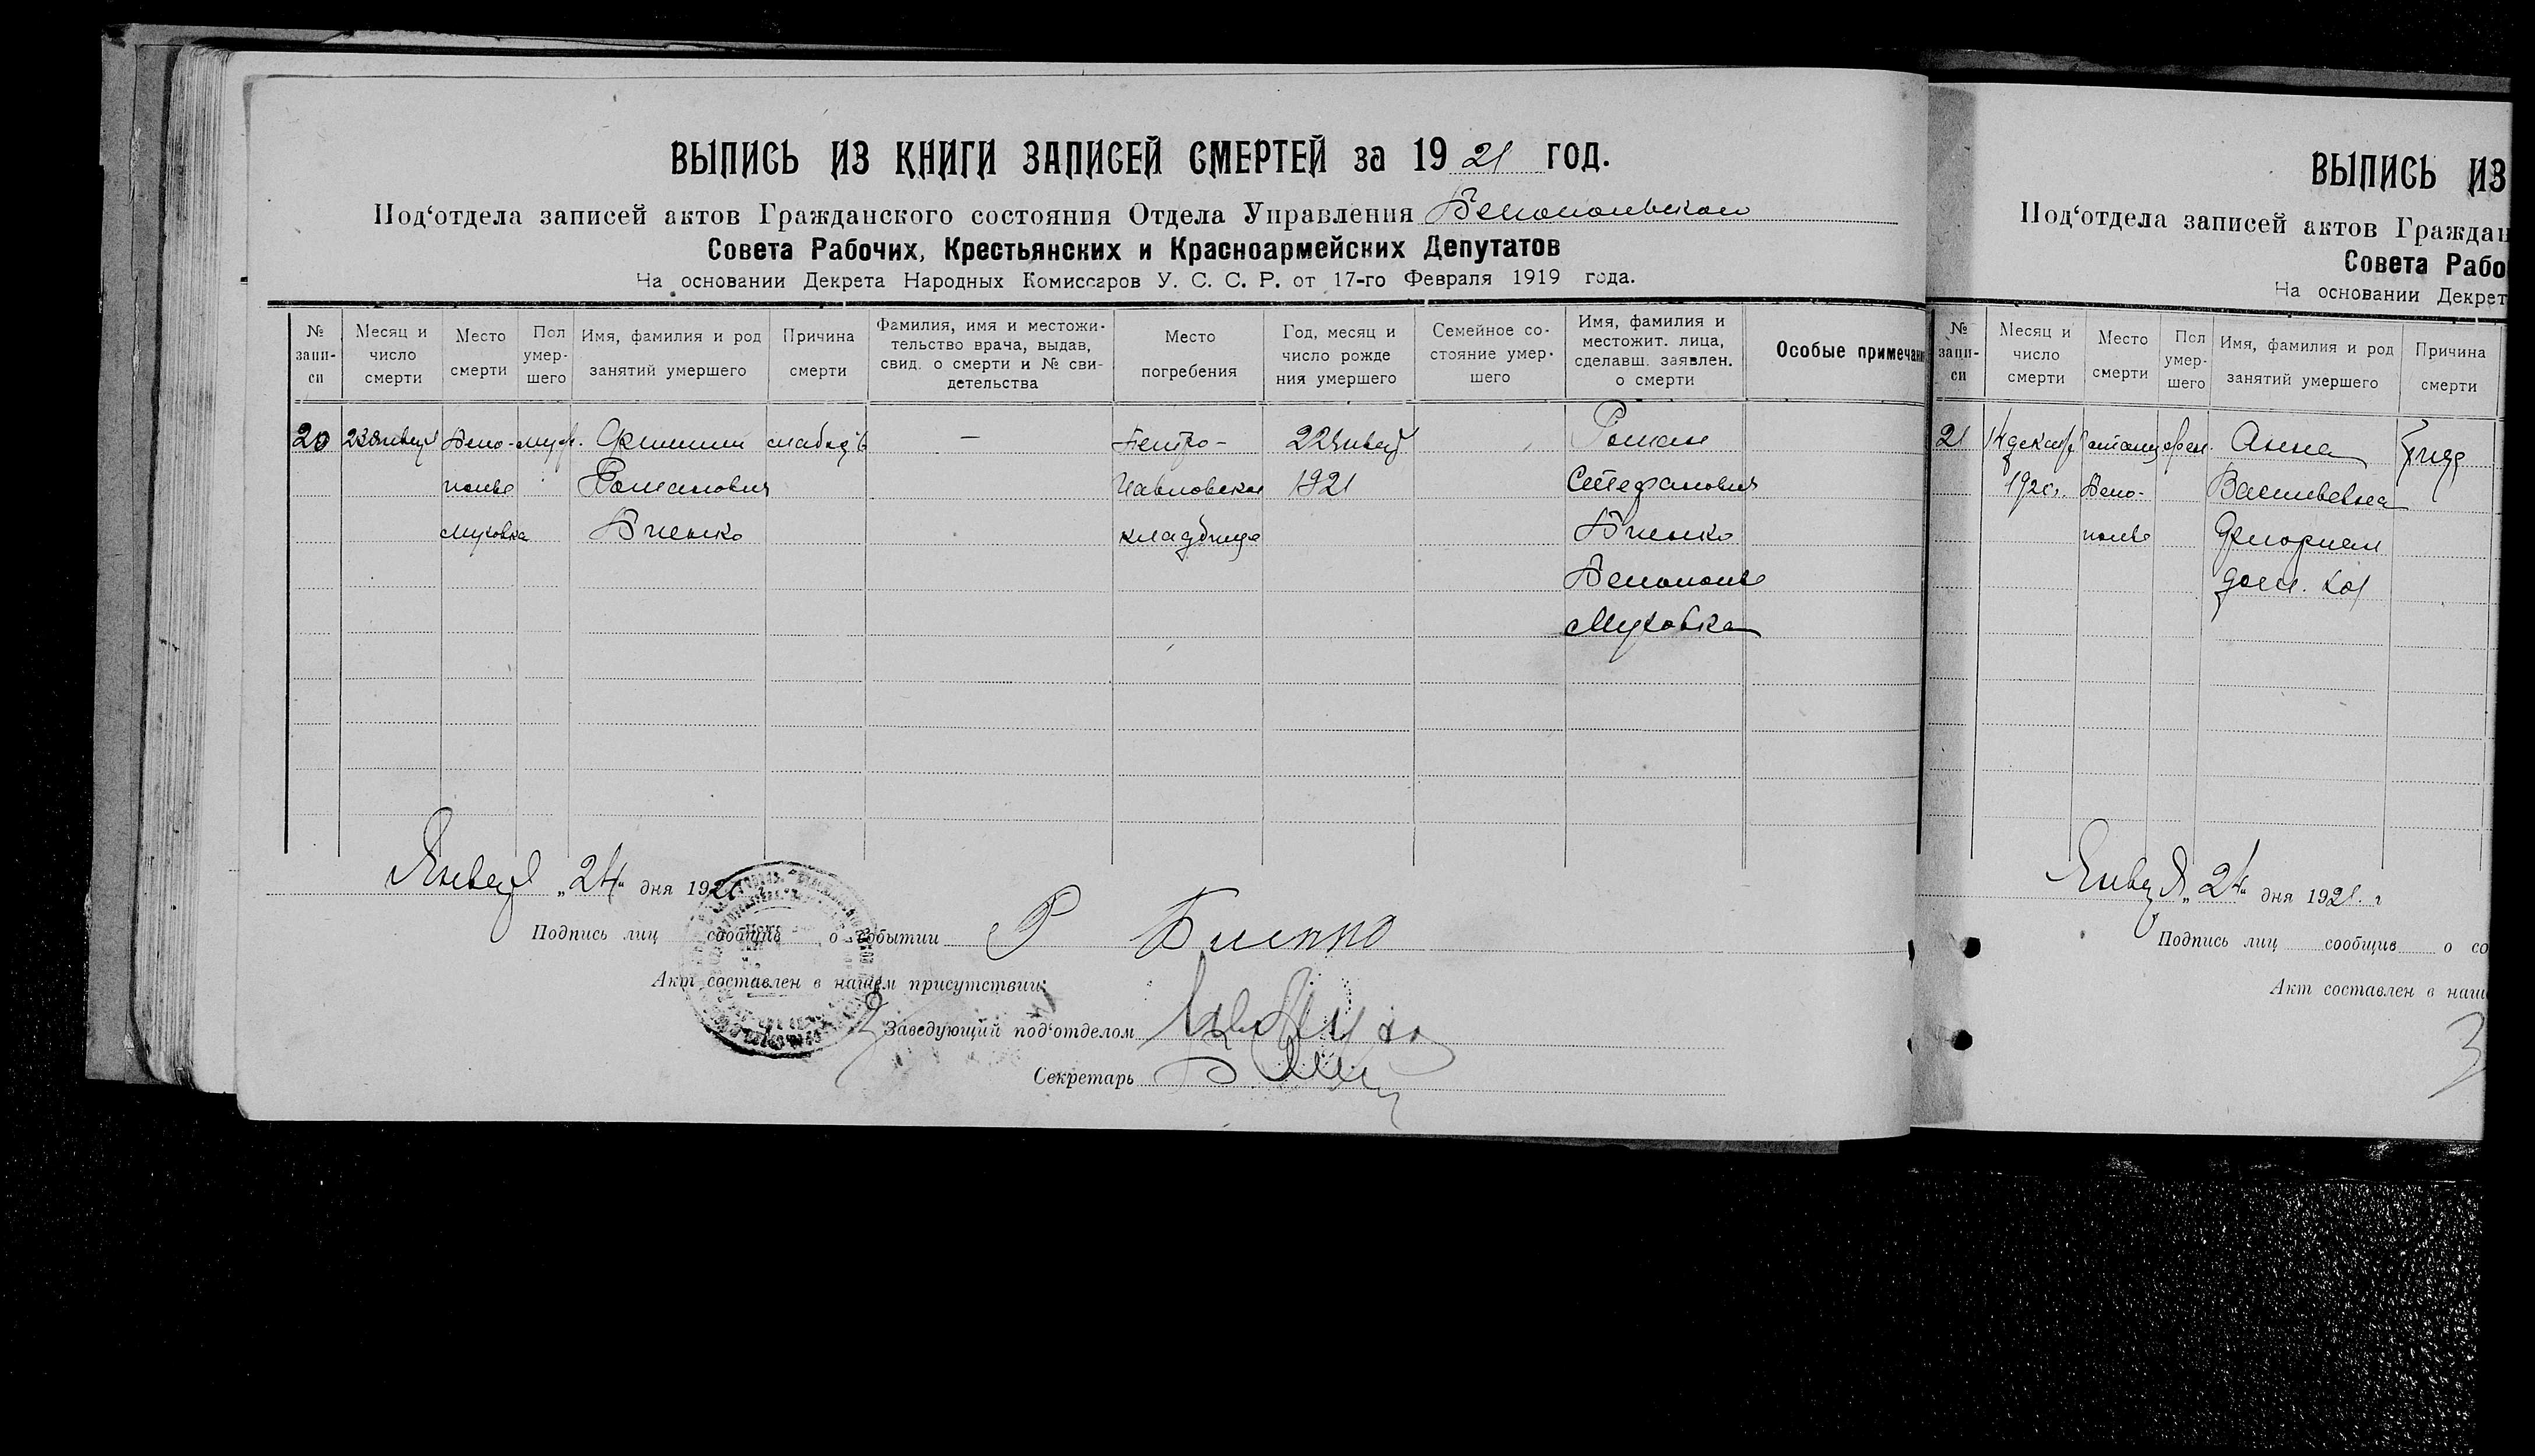 ВЫПИСЬ ИЗ КНИГИ ЗАПИСЕЙ СМЕРТЕЙ за 1921 год.
Под'отдела записей актов Гражданского состояния Отдела Управления Белопольского
Совета Рабочих, Крестьянских и Красноармейских Депутатов
На основании Декрета Народных Комиссаров У. С. С. Р. от 17-го Февраля 1919 года.
№ запи-си
Месяц и число смерти
Место смерти
Пол умер-шего
Имя, фамилия и род занятий умершего
Причина смерти
Фамилия, имя и местожи-тельство врача, выдав, свид. о смерти и № сви-детельства
Место погребения
Год, месяц и число рожде ния умершего
Семейное со-стояние умер-шего
Имя, фамилия и местожит. лица, сделавш. заявлен. о смерти
Особые примечан
20 23 января Бело- муж. Филипп — Петро- 22 январ Роман
полье Романович Павловское 1921 Стефанович
Муховка Биенко кладбище Биенко
Белополье
Муховка
Января „24“ дня 192
Подпись лиц сообщив о событии Р Биенко
Акт составлен в нашем присутствии:
Заведующий под'отделом
Секретарь
ВЫПИСЬ ИЗ
Под'отдела записей актов Граждан
Совета Рабо
На основании Декрет
№ запи-си
Месяц и число смерти
Место смерти
Пол умер-шего
Имя, фамилия и род занятий умершего
Причина смерти
21 14 декабр жен. Анна
1920г. Бело- Васильевна
полье
дом. хоз
Января „24“ дня 1921. г
Подпись лиц сообщив о со
Акт составлен в наше